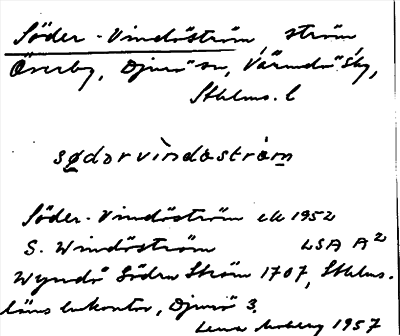 Söder-Vindöström ström
Överby, Djurö sn, Värmdö skg,
Sthlms. l
sødərvìndəstròm
Söder-Vindöström ek 1952
S. Windöström LSA A²
Wyndö Södra Ström 1707, Sthlms.
läns lukontor, Djurö 3.
1957